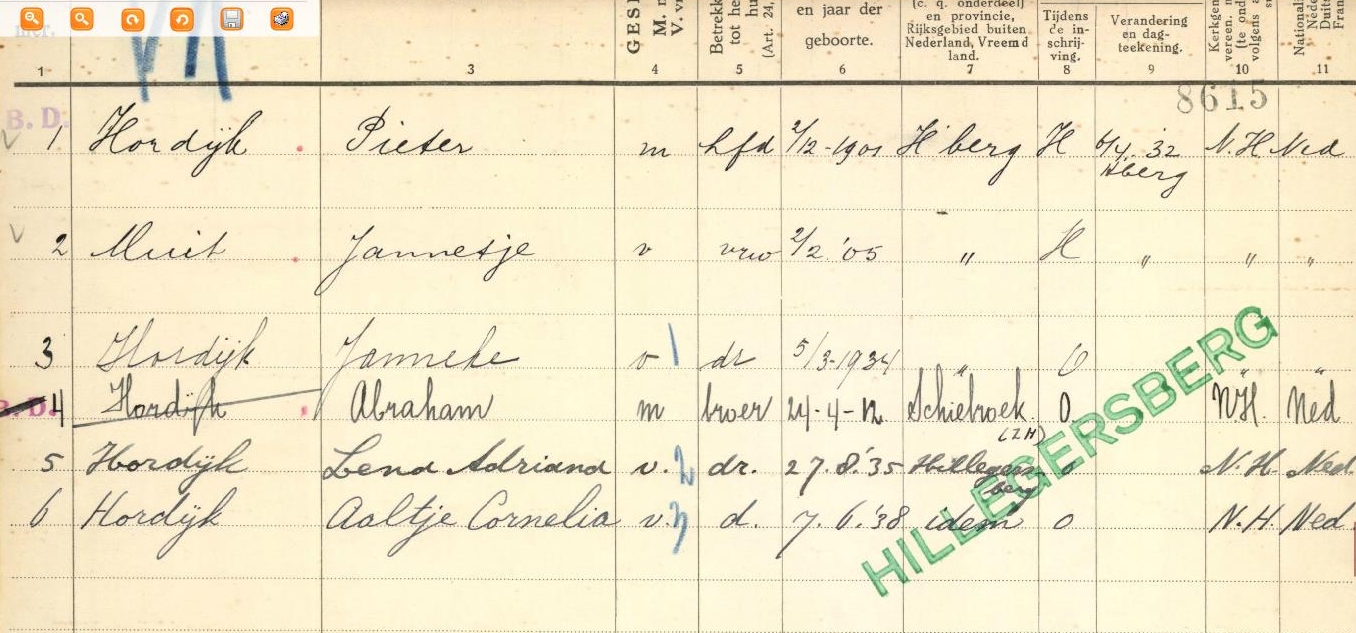 GES
M. n
V. vr
Betrekk
tot he
hu
(Art. 24,
en jaar der
geboorte.
(c. q. onderdeel)
en provincie,
Rijksgebied buiten
Nederland, Vreemd
land.
Tijdens
de in-
schrij-
ving.
Verandering
en dag-
teekening.
Kerkgen
vereen. n
(te ond
volgens a
Nationali
Nede
Duits
Fran
1 3 4 5 6 7 8 9 10 11
8615
B. D.
1 Hordijk Pieter m hfd 2/12-1901 H'berg H 6/4 '32 N.H Ned
Hberg
2 Muit Jannetje v vrw 2/2 '05 " H " " "
3 Hordijk Janneke v 1 dr 5/3-1934 " O " "
B. D. 4 Hordijk Abraham m broer 24-4-12 Schiebroek O NH. Ned
(ZH)
5 Hordijk Lena Adriana v. 2 dr. 27.8.'35 Hillegers o N.H. Ned
berg
6 Hordijk Aaltje Cornelia v. 3 d. 7.6.'38 idem o N.H. Ned.
HILLEGERSBERG